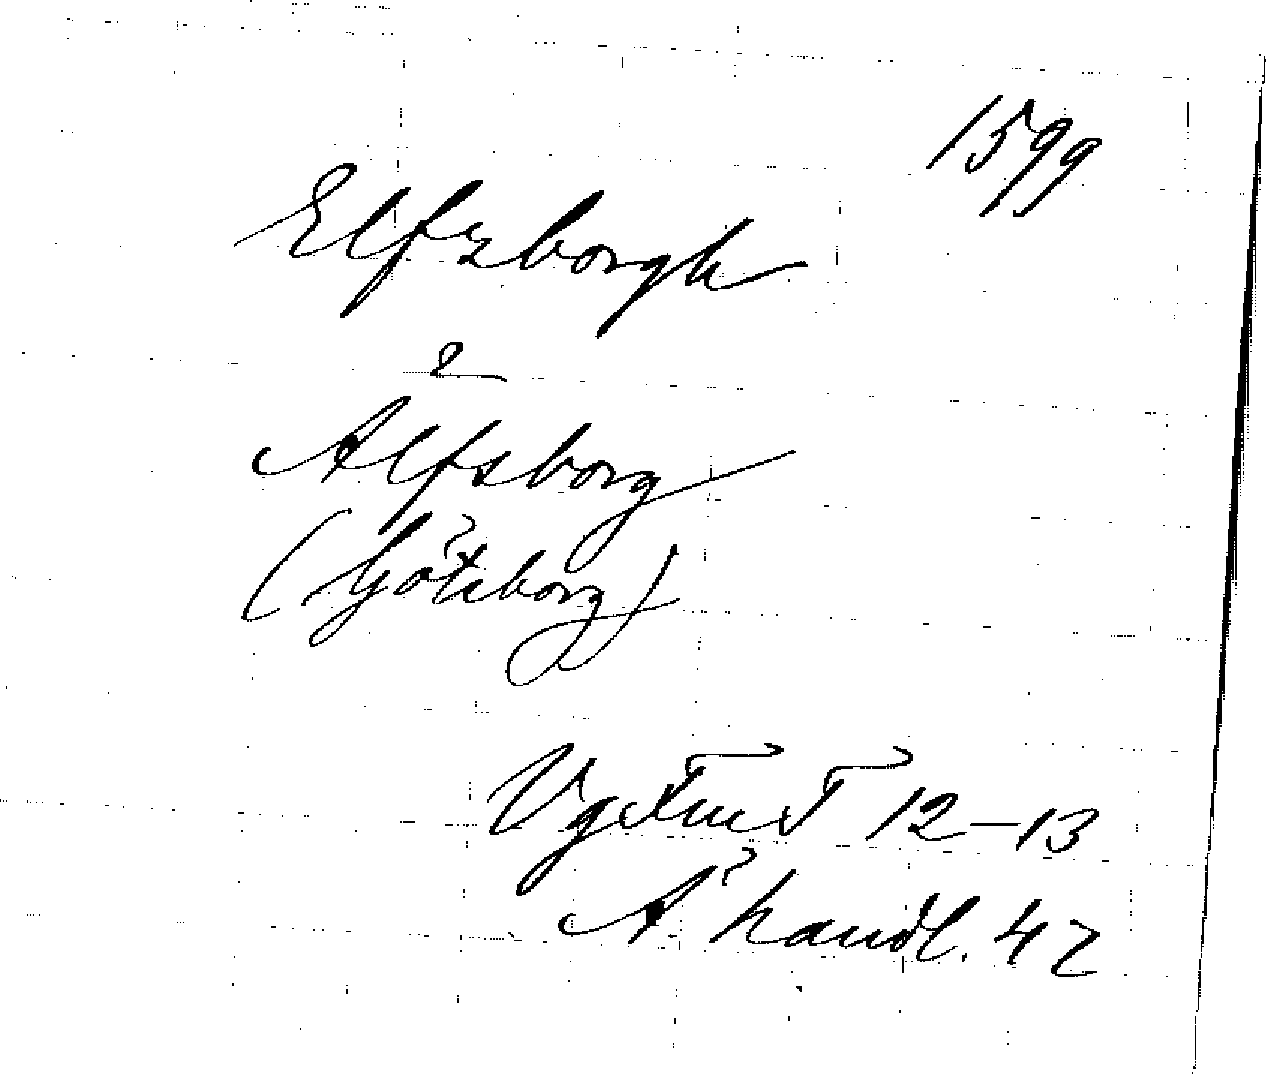 1599
Elfzborgh
Älfsborg
(Göteborg)
VgFmT 12-13
Ä handl. 42